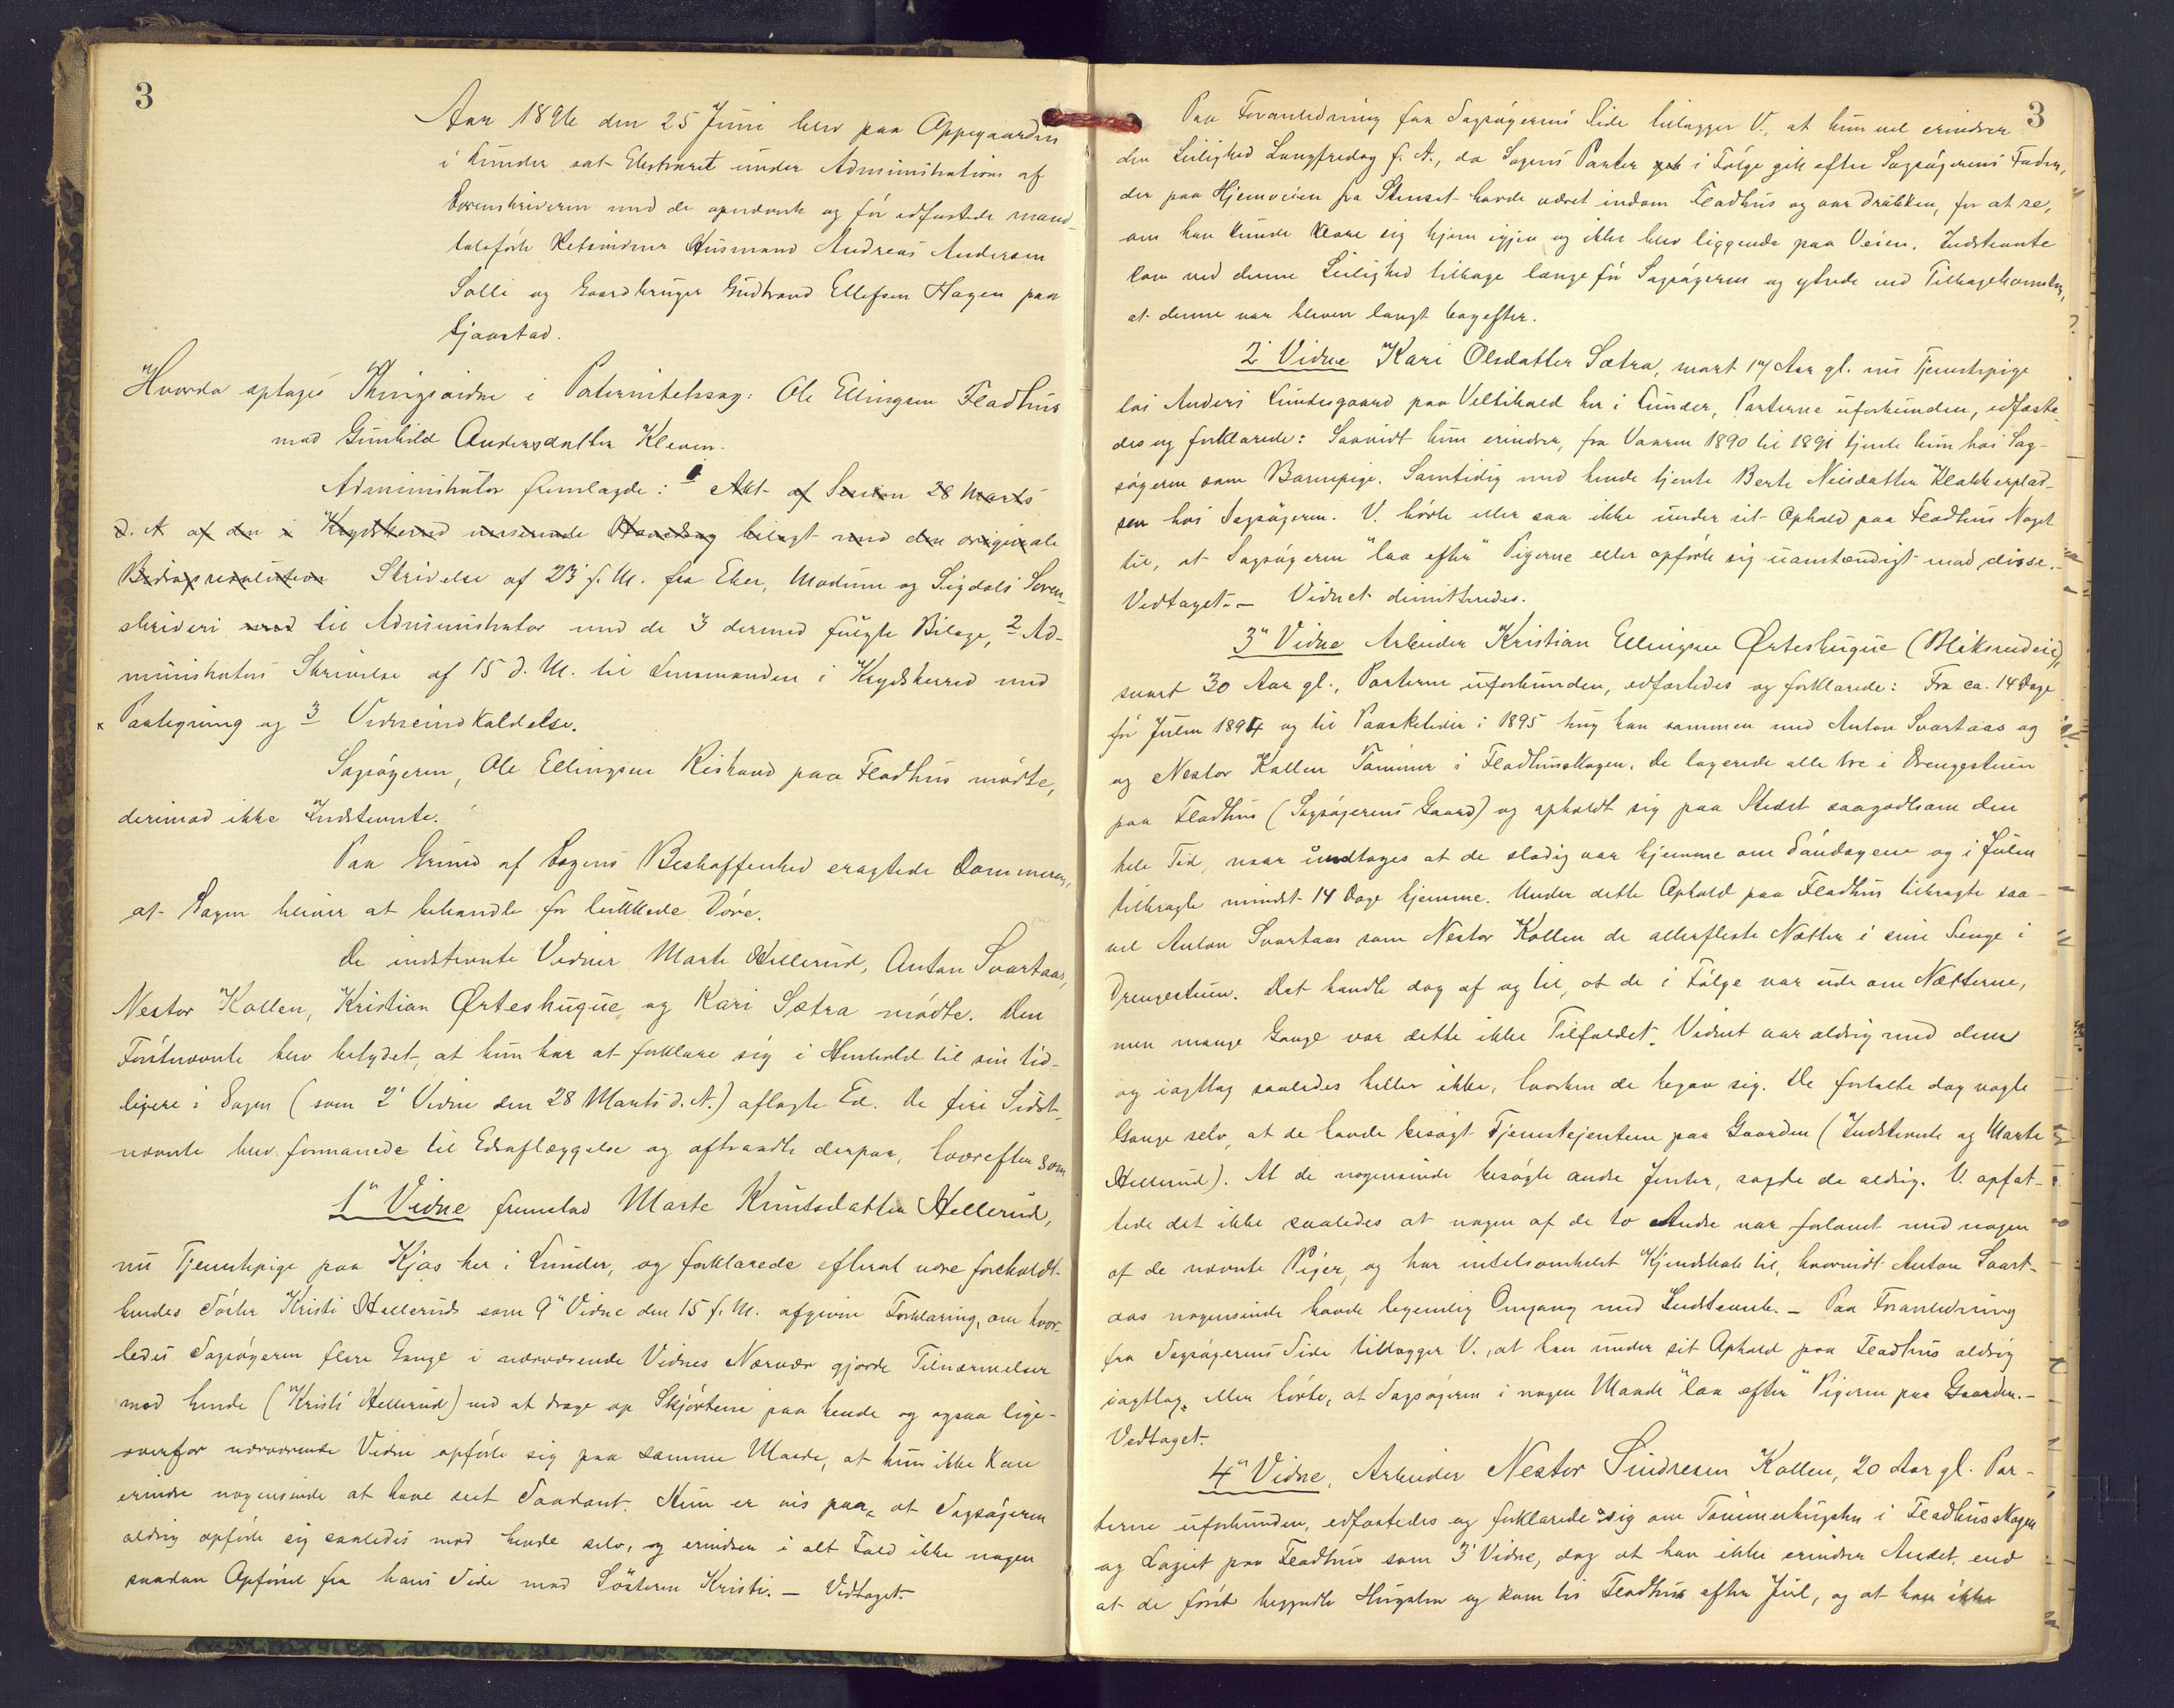 3
Aar 1896 den 25 Juni blev paa Oppegaarden
i Lunder sat Ekstraret under Administration af
Sorenskriveren med de opnævnte og før edfæstede mand-
talsførte Retsvidner Husmand Andreas Andersen
Solli og Gaardbruger Gudbrand Ellefsen Hagen paa
Gjaastad.
Hvorda optages Thingsvidne i Paternitetssag: Ole Ellingsen Fladhus
mod Gunhild Andersdatter Kleven.
Administrator fremlagde: 1 Akt af Session 28 Marts
d. A af den i Krydsherred verserende bilagt med den originale
Bidragsresolution Skrivelse af 23 f. M. fra Eker, Modum og Sigdals Soren-
skriveri med til Administrator med de 3 dermed fulgte Bilage, 2 Ad-
ministrators Skrivelse af 15 d. M. til Lensmanden i Krydsherred med
Paategning og 3 Vidneindkaldelse.
Sagsøgeren, Ole Ellingsen Ristrand paa Fladhus mødte,
derimod ikke Indstevnte.
Paa Grund af Sagens Beskaffenhed eragtede Dommeren,
at Sagen bliver at behandle for lukkede Døre.
De indstevnte Vidner Marte Hellerud, Anton Svartaas,
Nestor Kollen, Kristian Ørteshugue og Kari Sætra mødte. Den
Førstnævnte blev betydet, at hun har at forklare sig i Henhold til sin tid-
ligere i Sagen (som 2' Vidne den 28 Marts d. A.) aflagte Ed. De fire Sidst-
nævnte blev formanede til Edsaflæggelse og aftraadte derpaa, hvorefter som
1'' Vidne fremstod Marte Knutsdatter Hellerud,
nu Tjenstepige paa Kjos her i Lunder, og forklarede efterat være foreholdt
hendes Søster Kristi Helleruds som 9'' Vidne den 15 f. M. afgivne Forklaring, om hvor-
ledes Sagsøgeren flere Gange i nærværende Vidnes Nærvær gjorde Tilnærmelser
mod hende (Kristi Hellerud) ved at drage op Skjørterne paa hende og ogsaa lige-
overfor nærværende Vidne opførte sig paa samme Maade, at hun ikke kan
erindre nogensinde at have seet Saadant. Hun er vis paa, at Sagsøgeren
aldrig opførte sig saaledes mod hende selv, og erindrer i alt Fald ikke nogen
saadan Opførsel fra hans Side mod Søsteren Kristi. – Vedtaget.
3
Paa Foranledning fra Sagsøgerens Side tillægger V., at hun vel erindrer
den Leilighed Langfredag f. A., da Sagens Parter gik i Følge gik efter Sagsøgerens Fader,
der paa Hjemveien fra Stenset havde været indom Fladhus og var drukken, for at se,
om han kunde klare sig hjem igjen og ikke blev liggende paa Veien. Indstevnte
kom ved denne Leilighed tilbage længe før Sagsøgeren og ytrede ved Tilbagekomsten,
at denne var bleven langt bagefter.
2' Vidne Kari Olsdatter Sætra, snart 17 Aar gl. nu Tjenstepige
hos Anders Lundesgaard paa Veltibald her i Lunder, Parterne uforbunden, edfæste-
des og forklarede: Saavidt hun erindrer, fra Vaaren 1890 til 1891 tjente hun hos Sag-
søgeren som Barnepige. Samtidig med hende tjente Berte Neisdatter Klakkerplad-
sen hos Sagsøgeren. V. hørte eller saa ikke under sit Ophold paa Fladhus Noget
til, at Sagsøgeren "laa efter" Pigerne eller opførte sig uanstændigt mod disse. –
Vedtaget. – Vidnet dimitteredes.
3'' Vidne Arbeider Kristian Ellingsen Ørteshugue (Bliksrudeie),
snart 30 Aar gl., Parterne uforbunden, edfæstedes og forklarede: Fra ca. 14 Dage
før Julen 1894 og til Paasketider i 1895 hug han sammen med Anton Svartaas og
og Nestor Kollen Tømmer i Fladhusskogen. De logerede alle tre i Drengestuen
paa Fladhus (Sagsøgerens Gaard) og opholdt sig paa Stedet saagodtsom den
hele Tid, naar undtages at de stadig var hjemme om Søndagene og i Julen
tilbragte mindst 14 Dage hjemme. Under dette Ophold paa Fladhus tilbragte saa-
vel Anton Svartaas som Nestor Kollen de allerfleste Nætter i sine Senge i
Drengestuen. Det hændte dog af og til, at de i Følge var ude om Nætterne,
men mange Gange var dette ikke Tilfældet. Vidnet var aldrig med dem
og iagttog saaledes heller ikke, hvorhen de begav sig. De fortalte dog nogle
Gange selv, at de havde besøgt Tjenestejenterne paa Gaarden (Indstevnte og Marte
Hellerud). At de nogensinde besøgte andre Jenter, sagde de aldrig. V. opfat-
tede det ikke saaledes at nogen af de to Andre var forlovet med nogen
af de nævnte Piger, og har intetsomhelst Kjendskab til, hvorvidt Anton Svart-
aas nogensinde havde legemlig Omgang med Indstevnte. – Paa Foranledning
fra Sagsøgerens Side tillægger V., at han under sit Ophold paa Fladhus aldrig
iagttog eller hørte, at Sagsøgeren i nogen Maade "laa efter" Pigerne paa Gaarden. –
Vedtaget.
4'' Vidne, Arbeider Nestor Sindresen Kollen, 20 Aar gl. Par-
terne uforbunden, edfæstedes og forklarede sig om Tømmerhugsten i Fladhusskogen
og Logiet paa Fladhus som 3' Vidne, dog at han ikke erindrer Andet, end
at de først begyndte Hugsten og kom til Fladhus efter Jul, og at han ikke